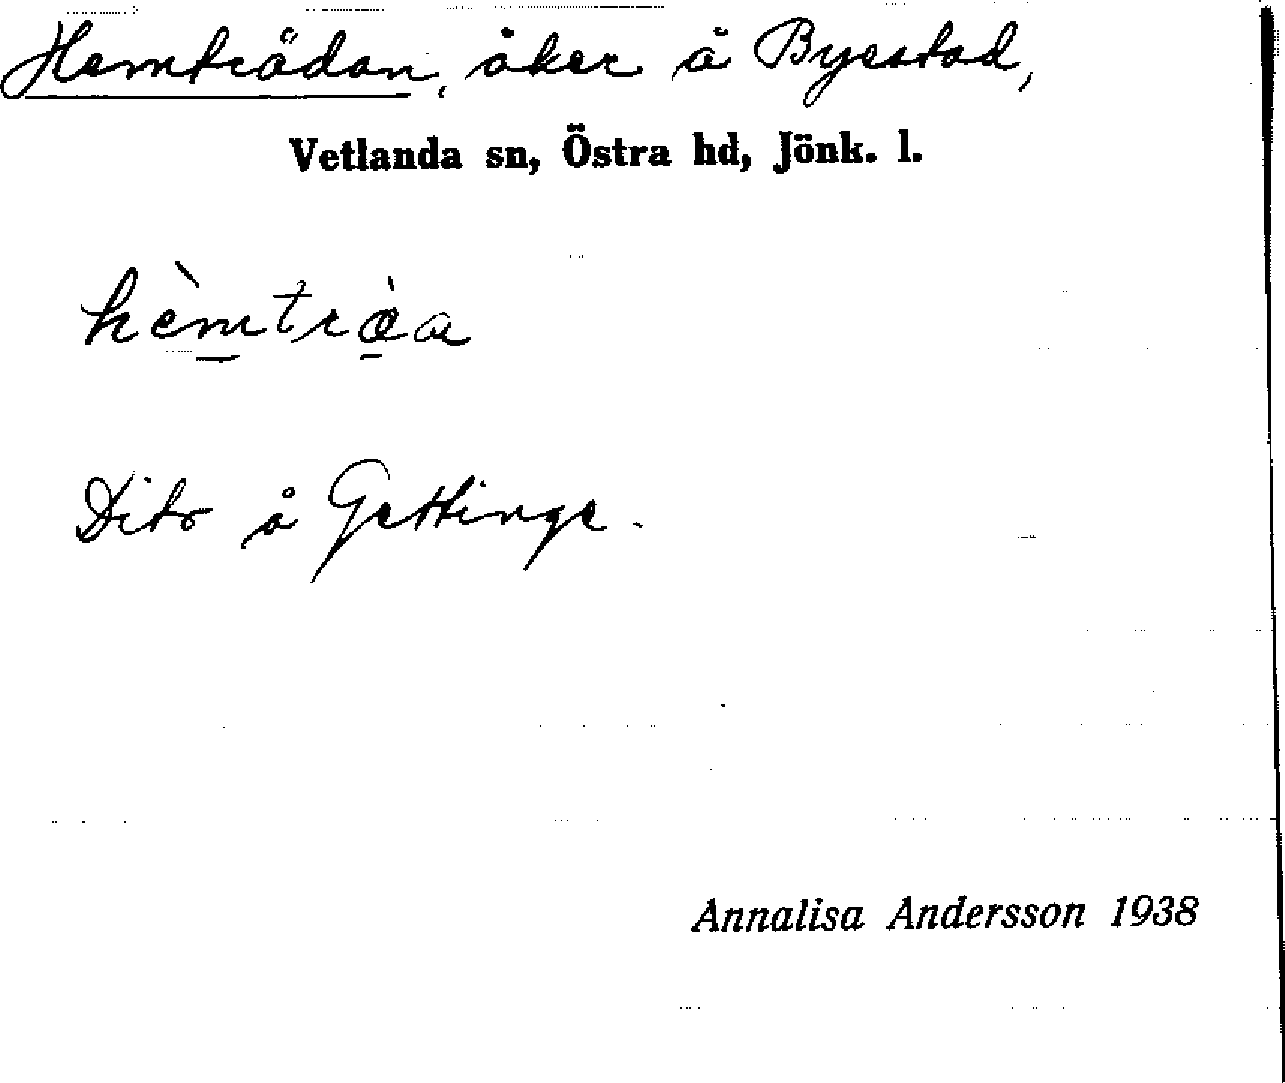 Hemträdan, åker å Byestad,
Vetlanda sn, Östra hd, Jönk. l.
hèmtræ̀a
Dito å Gettinge.
Annalisa Andersson 1938